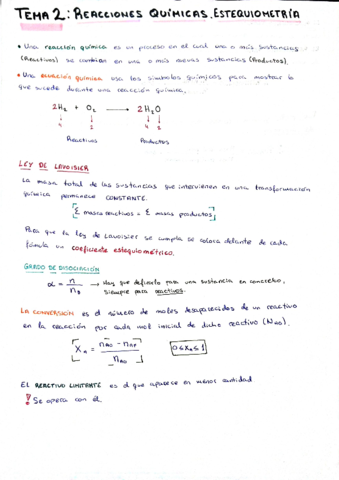 TEMA 2: REACCIONES QUÍMICAS. ESTEQUIOMETRÍA
• Una reacción química es un proceso en el cual una o más sustancias
(Reactivos) se cambian en una o más nuevas sustancias (Productos).
• Una ecuación química usa los símbolos químicos para mostrar lo
que sucede durante una reacción química.
2H₂ + O₂ → 2H₂O
4 2 4 2
Reactivos Productos
LEY DE LAVOISIER
La masa total de las sustancias que intervienen en una transformación
química permanece CONSTANTE.
[Σ masa reactivos = Σ masas productos]
Para que la ley de Lavoisier se cumpla se coloca delante de cada
fórmula un coeficiente estequiométrico.
GRADO DE DISOCIACIÓN
α = n / n₀ → Hay que definirlo para una sustancia en concreto,
siempre para reactivos.
LA CONVERSIÓN es el número de moles desaparecidos de un reactivo
en la reacción por cada mol inicial de dicho reactivo (NA0).
[XA = nA0 - nAF / nA0] 0≤XA≤1
EL REACTIVO LIMITANTE es el que aparece en menos cantidad
! Se opera con él